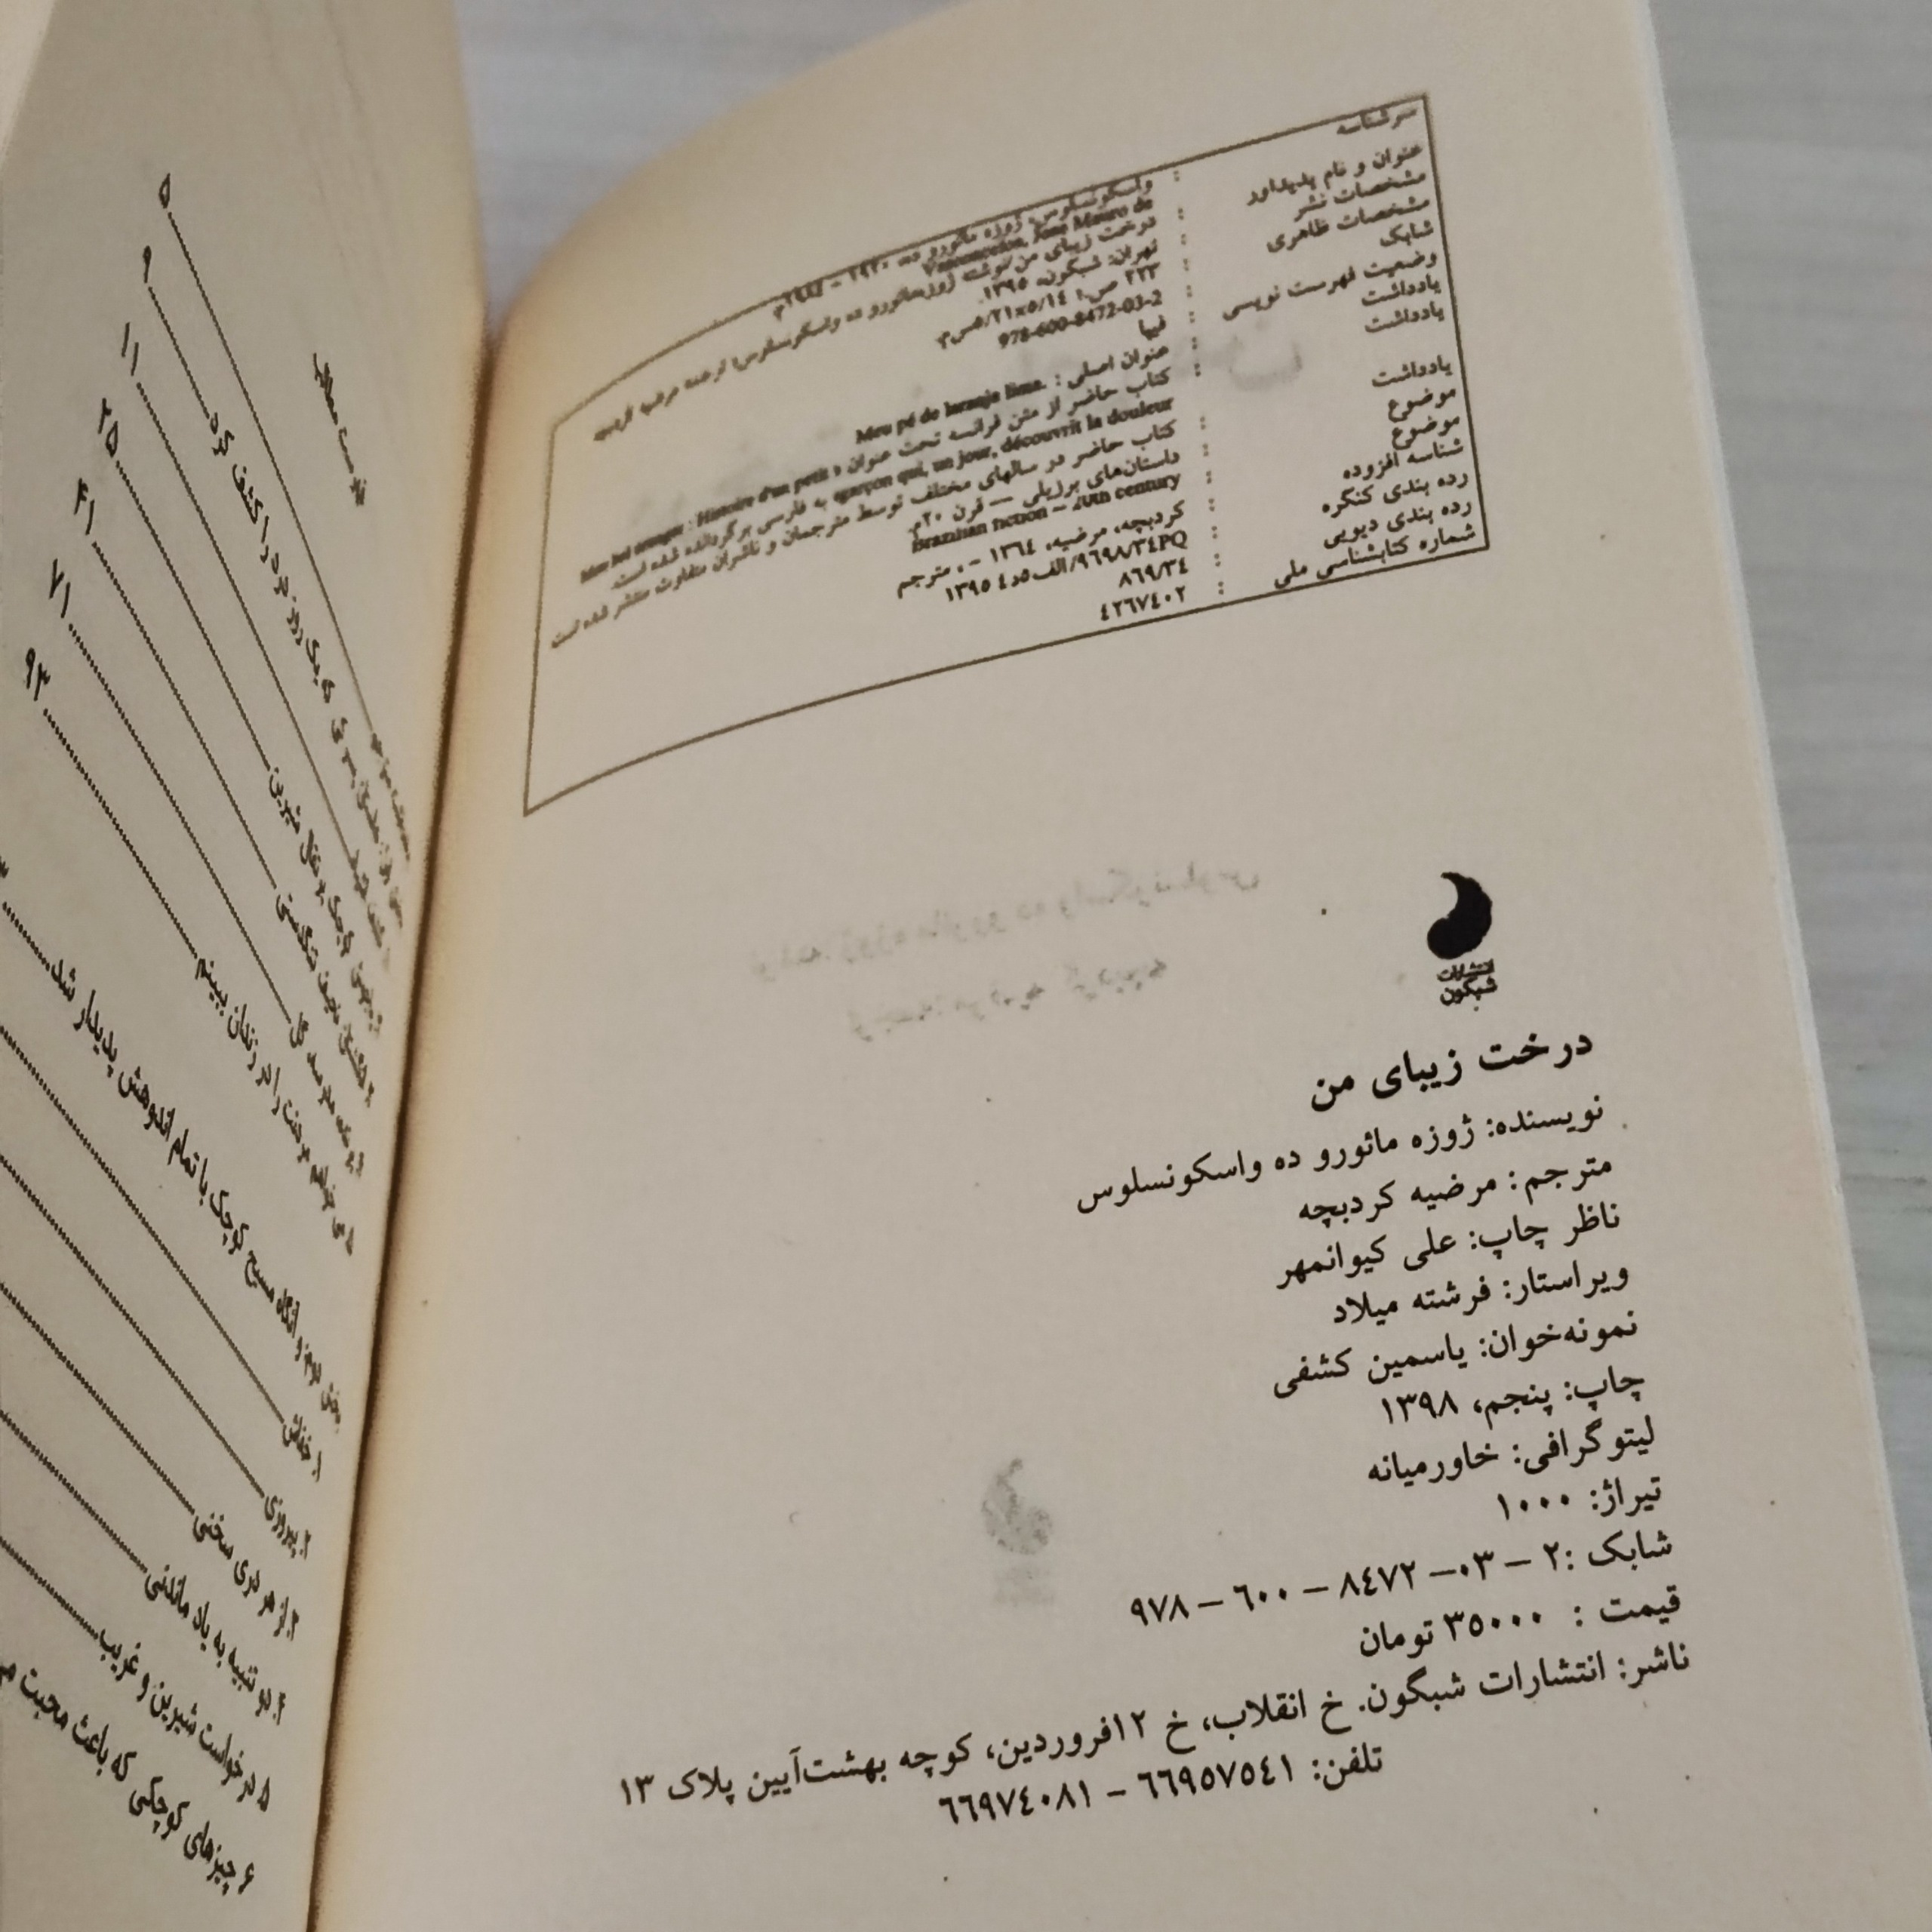 سرشناسه : واسکونسلوس، ژوزه مائورو ده، ۱۹۲۰ – ۱۹۸۴م
Vasconcelos, Jose Mauro de
عنوان و نام پدیدآور : درخت زیبای من نوشته ژوزه‌مائورو ده واسکونسلوس؛ ترجمه مرضیه کردبچه
مشخصات نشر : تهران: شبگون، ۱۳۹۵.
مشخصات ظاهری : ۲۲۳ ص.؛ ۲۱×۵/۱۴/۵س‌م
شابک : 978-600-8472-03-2
وضعیت فهرست نویسی : فیپا
یادداشت : عنوان اصلی : Meu pé de laranja lima.
یادداشت : کتاب حاضر از متن فرانسه تحت عنوان « Mon bel oranger : Histoire d'un petit
garçon qui, un jour, découvrit la douleur» به فارسی برگردانده شده است.
یادداشت : کتاب حاضر در سالهای مختلف توسط مترجمان و ناشران متفاوت منتشر شده است
موضوع : داستان‌های برزیلی — قرن ۲۰م
موضوع : Brazilian fiction – 20th century
شناسه افزوده : کردبچه، مرضیه، ۱۳٦٤ - ، مترجم
رده بندی کنگره : ۱۳۹۵ ٤د٥الف/۹٦۹۸/۳٤PQ
رده بندی دیویی : ۸٦۹/۳٤
شماره کتابشناسی ملی : ٤۲٦۷٤۰۲
انتشارات
شبگون
درخت زیبای من
نویسنده: ژوزه مائورو ده واسکونسلوس
مترجم: مرضیه کردبچه
ناظر چاپ: علی کیوانمهر
ویراستار: فرشته میلاد
نمونه‌خوان: یاسمین کشفی
چاپ: پنجم، ۱۳۹۸
لیتوگرافی: خاورمیانه
تیراژ: ۱۰۰۰
شابک :۲ – ۰۳– ۸٤۷۲ – ٦۰۰ – ۹۷۸
قیمت : ۳٥۰۰۰ تومان
ناشر: انتشارات شبگون. خ انقلاب، خ ۱۲فروردین، کوچه بهشت‌آیین پلاک ۱۳
تلفن: ٦٦۹٥۷٥٤۱ – ٦٦۹۷٤۰۸۱
۵
۹
۱۱
۲۵
۴۱
۷۱
۹۳
را در زندان ببینم
مسیح کوچک با تمام اندوهش پدیدار شد
۱. خفاش
۲. پیروزی
۳. از هر دری سخنی
۴. دو تنبیه به یاد ماندنی
۵. درخواست شیرین و غریب
۶. چیزهای کوچکی که باعث محبت